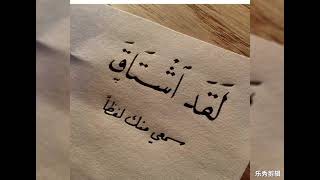 لَقَد اَشْتَاقَ
سمعي منك لفظاً
乐秀剪辑